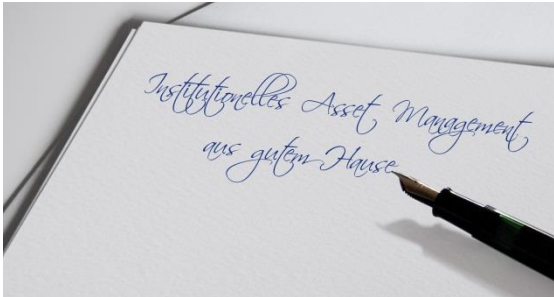 Institutionelles Asset Management
aus gutem Hause